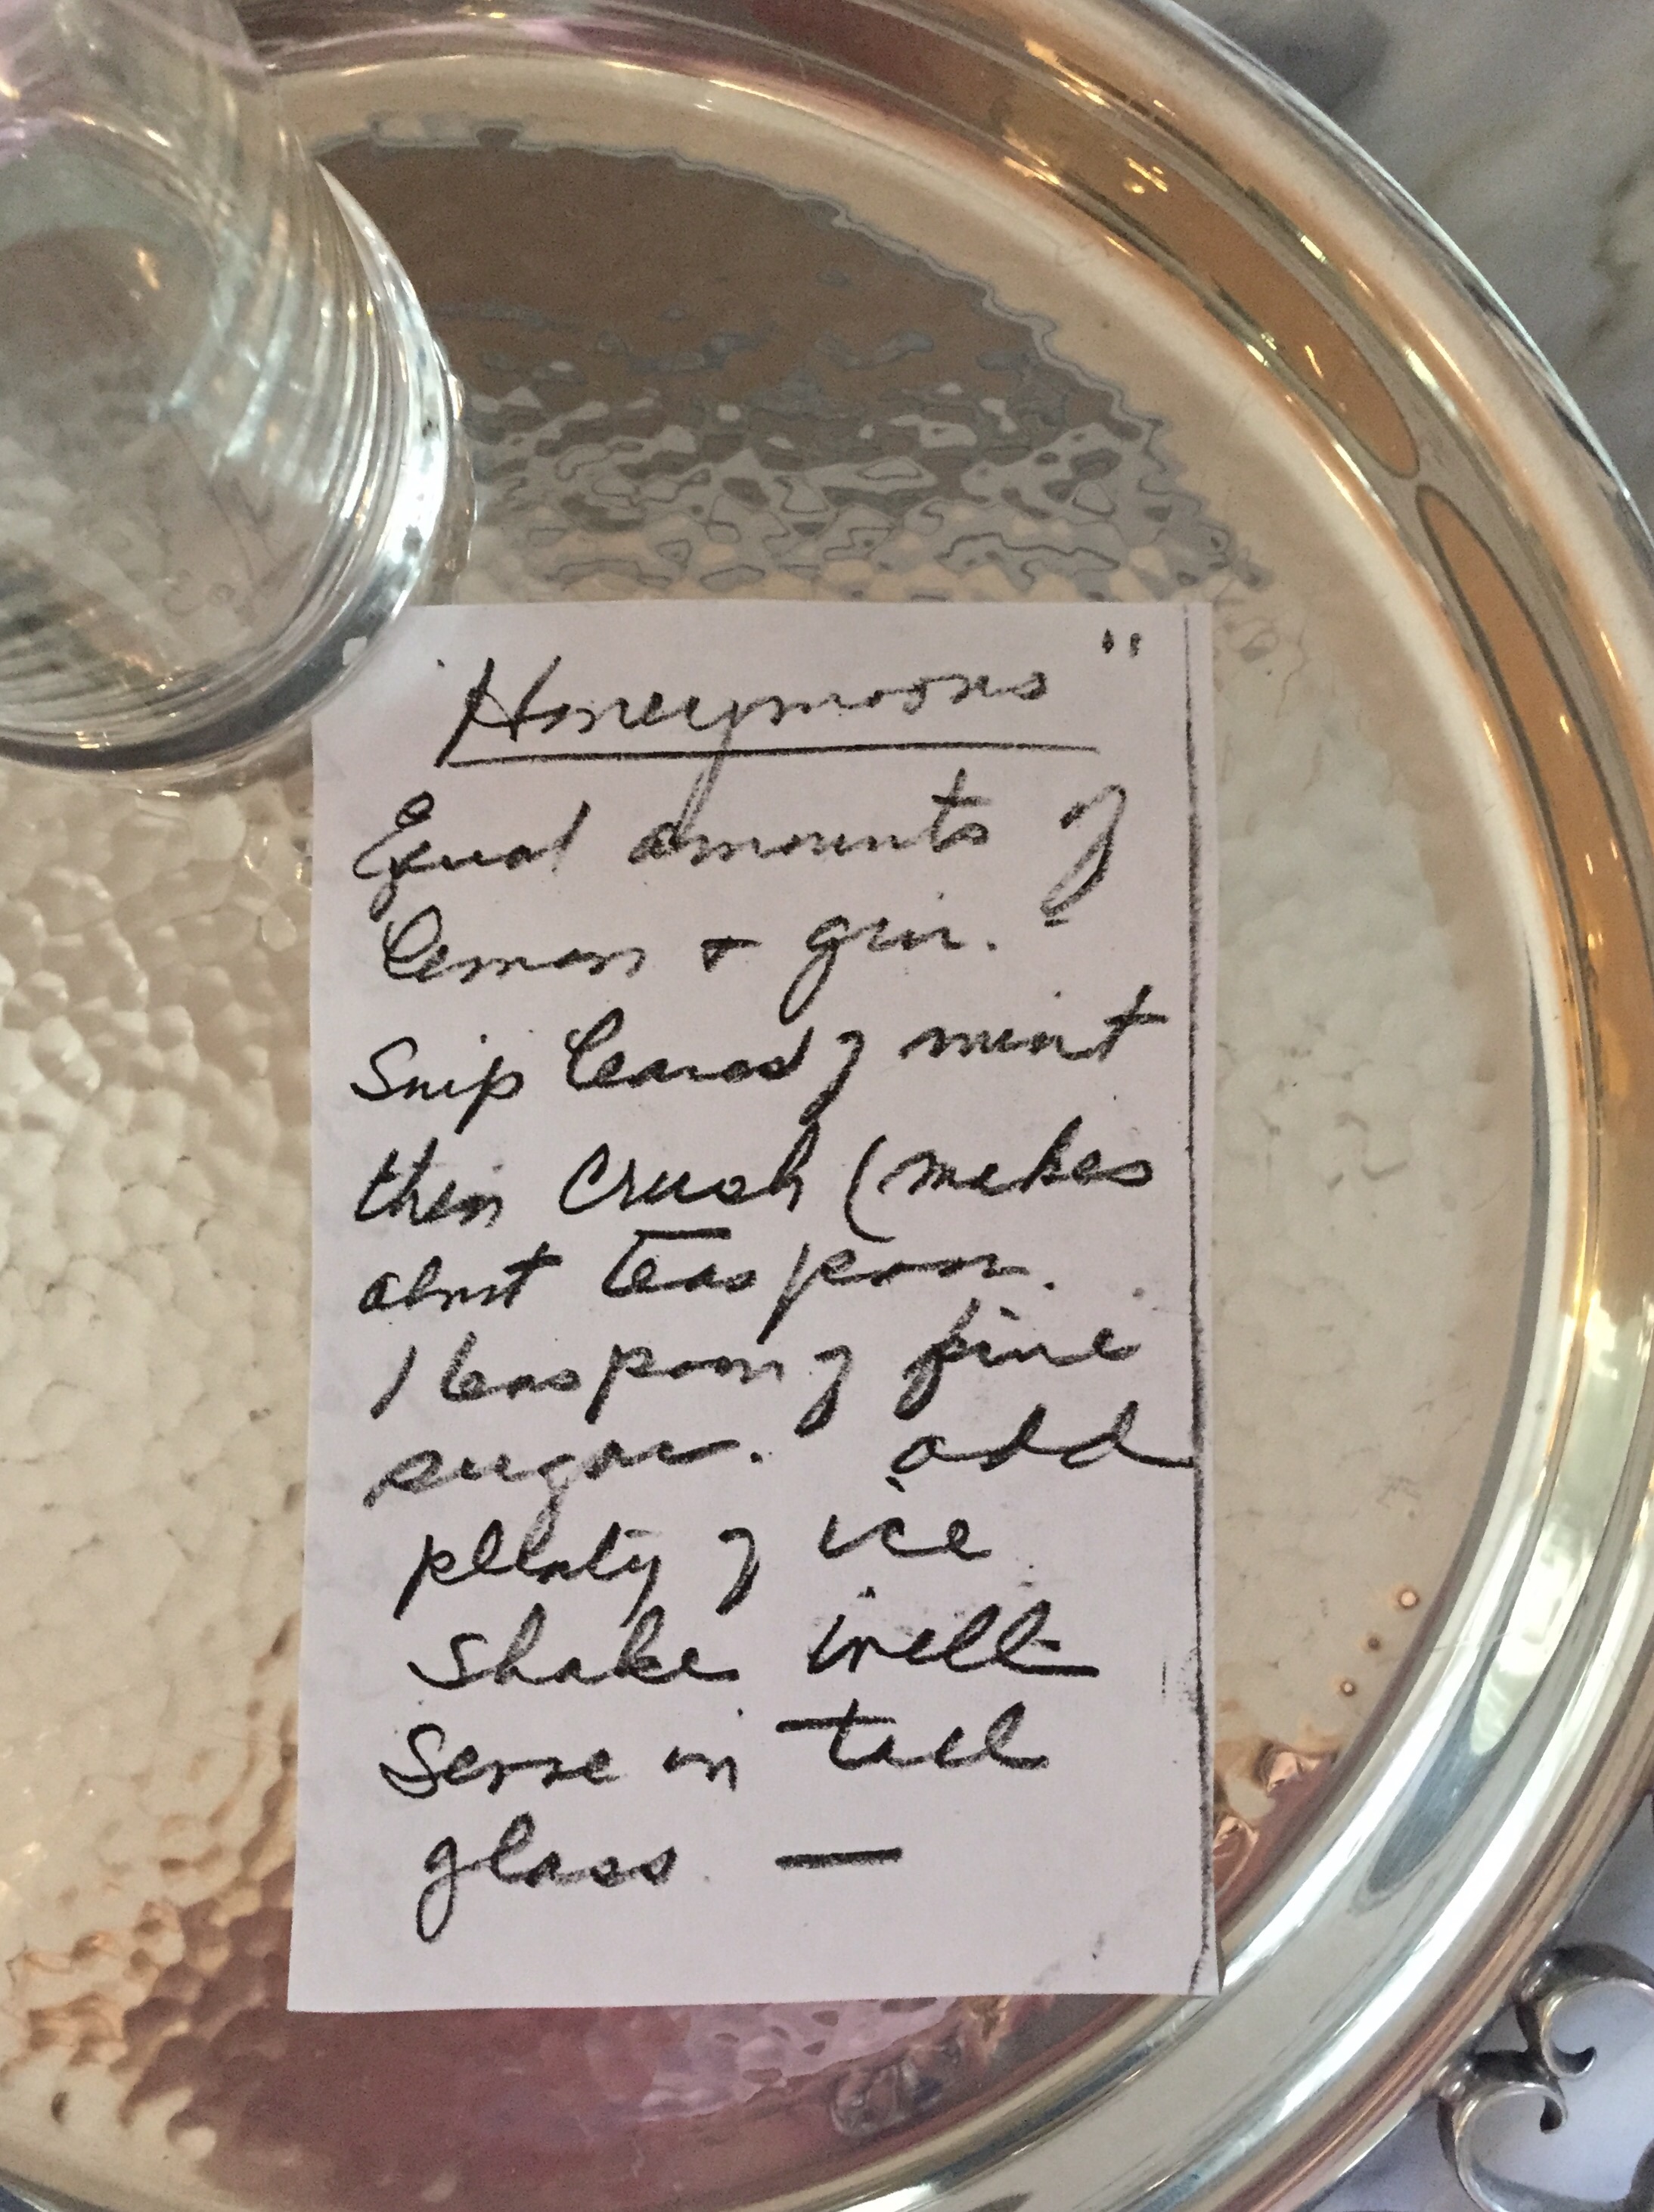 "Honeymoons"
Equal amounts of
lemon + gin.
Snip leaves of mint
then crush (makes
about teaspoon.
1 teaspoon of fine
sugar. add
plenty of ice
shake well
Serve in tall
glass. —